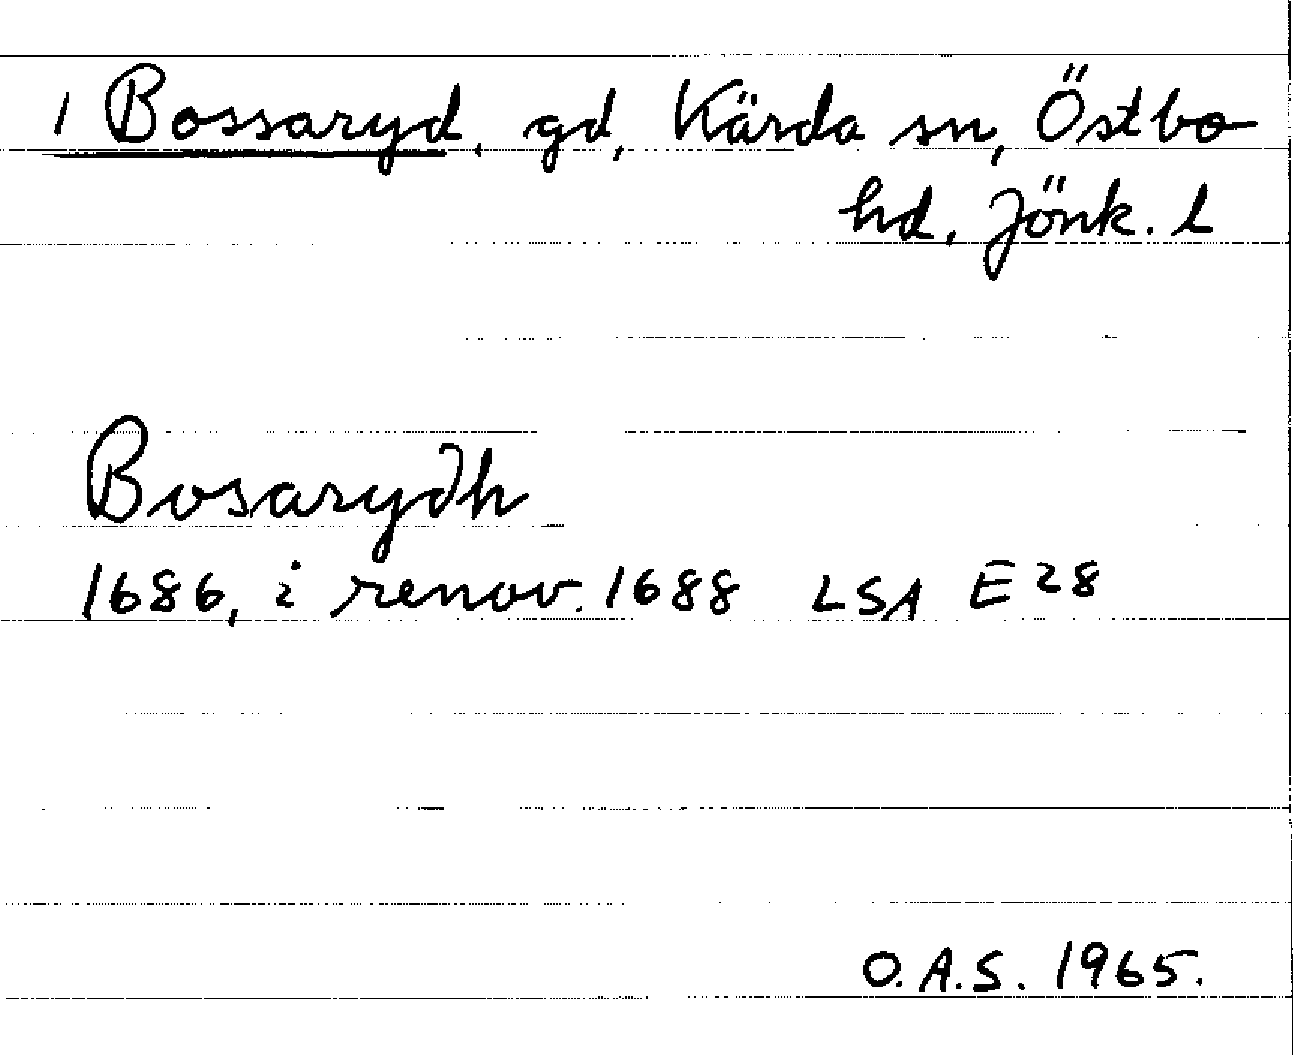 1 Bossaryd, gd, Kärda sn, Östbo
hd, Jönk. l
Bosarydh
1686, i renov. 1688 LSA E 28
O.A.S. 1965.